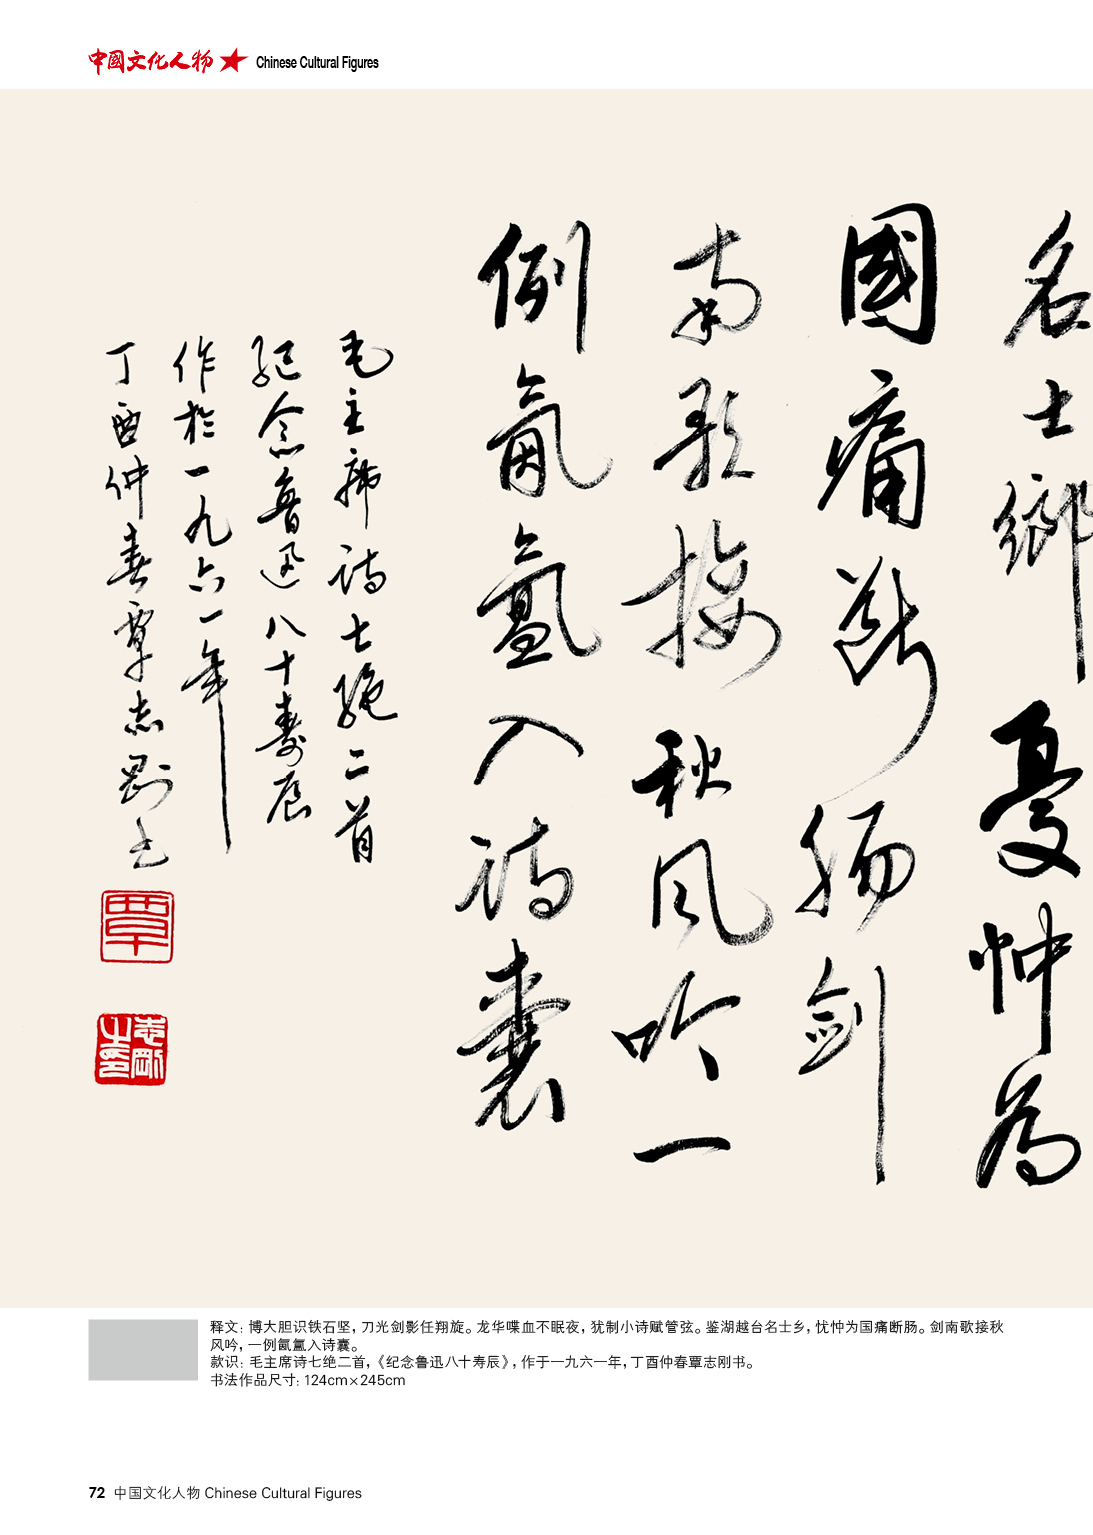 中國文化人物 Chinese Cultural Figures
名士鄉憂忡為
國痛斷腸劍
南歌接秋風吟一
例氤氳入詩囊
毛主席詩七绝二首
纪念鲁迅八十寿辰
作於一九六一年
丁酉仲春覃志刚书
覃
志剛之印
释文: 博大胆识铁石坚, 刀光剑影任翔旋。龙华喋血不眠夜, 犹制小诗赋管弦。鉴湖越台名士乡, 忧忡为国痛断肠。剑南歌接秋
风吟, 一例氤氲入诗囊。
款识: 毛主席诗七绝二首,《纪念鲁迅八十寿辰》, 作于一九六一年, 丁酉仲春覃志刚书。
书法作品尺寸: 124cm×245cm
72 中国文化人物 Chinese Cultural Figures